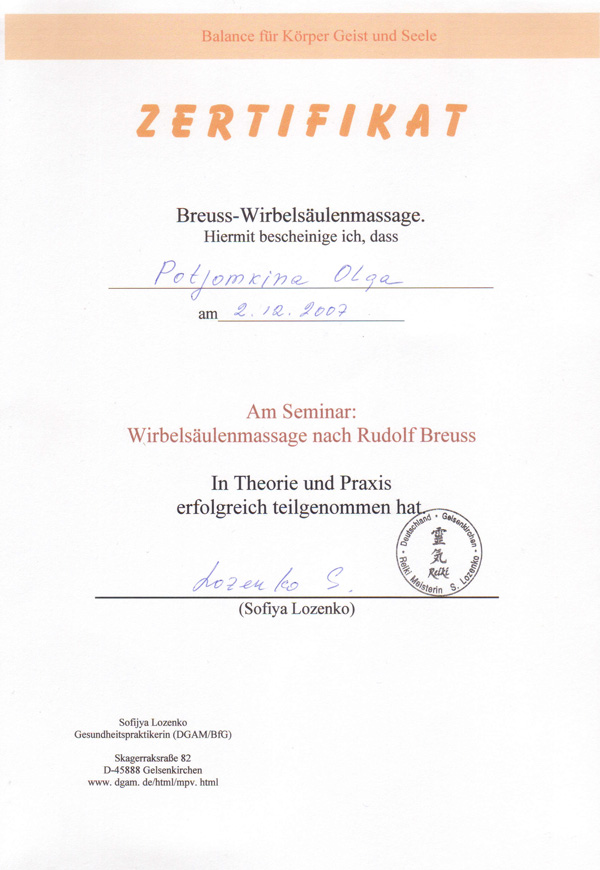 Balance für Körper Geist und Seele
ZERTIFIKAT
Breuss-Wirbelsäulenmassage.
Hiermit bescheinige ich, dass
Potjomkina Olga
am 2.12.2007
Am Seminar:
Wirbelsäulenmassage nach Rudolf Breuss
In Theorie und Praxis
erfolgreich teilgenommen hat.
Deutschland • Gelsenkirchen •
靈
気
Reiki
Reiki Meisterin S. Lozenko
Lozenko S.
(Sofiya Lozenko)
Sofijya Lozenko
Gesundheitspraktikerin (DGAM/BfG)
Skagerraksraße 82
D-45888 Gelsenkirchen
www. dgam. de/html/mpv. html